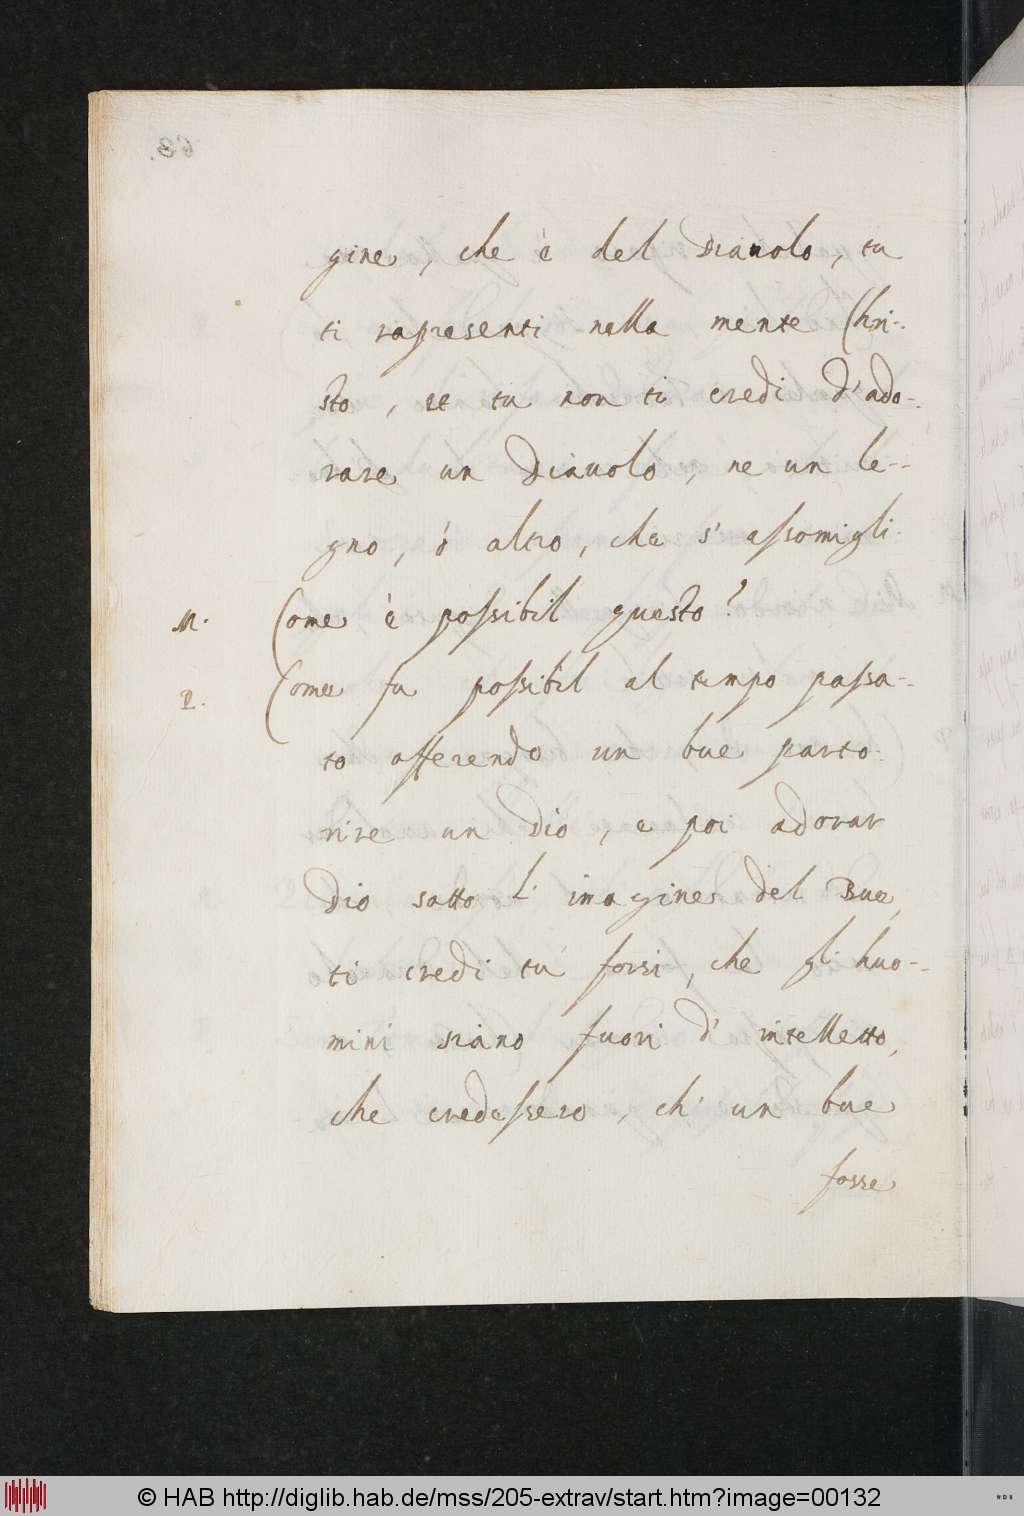 gine, che è del Diauolo, tu
ti rapresenti nella mente Chri-
sto, se tu non ti credi d'ado-
rare un Diauolo, ne un le-
gno, ò altro, che s'assomigli.
M. Come è possibil questo?
P. Come fu possibil al tempo passa-
to asserendo un bue parto-
rire un Dio, e poi adorar
Dio sotto l'imagine del Bue,
ti credi tu forsi, che gli huo-
mini siano fuori d'intelletto,
che credessero, ch'un bue
fosse
© HAB http://diglib.hab.de/mss/205-extrav/start.htm?image=00132